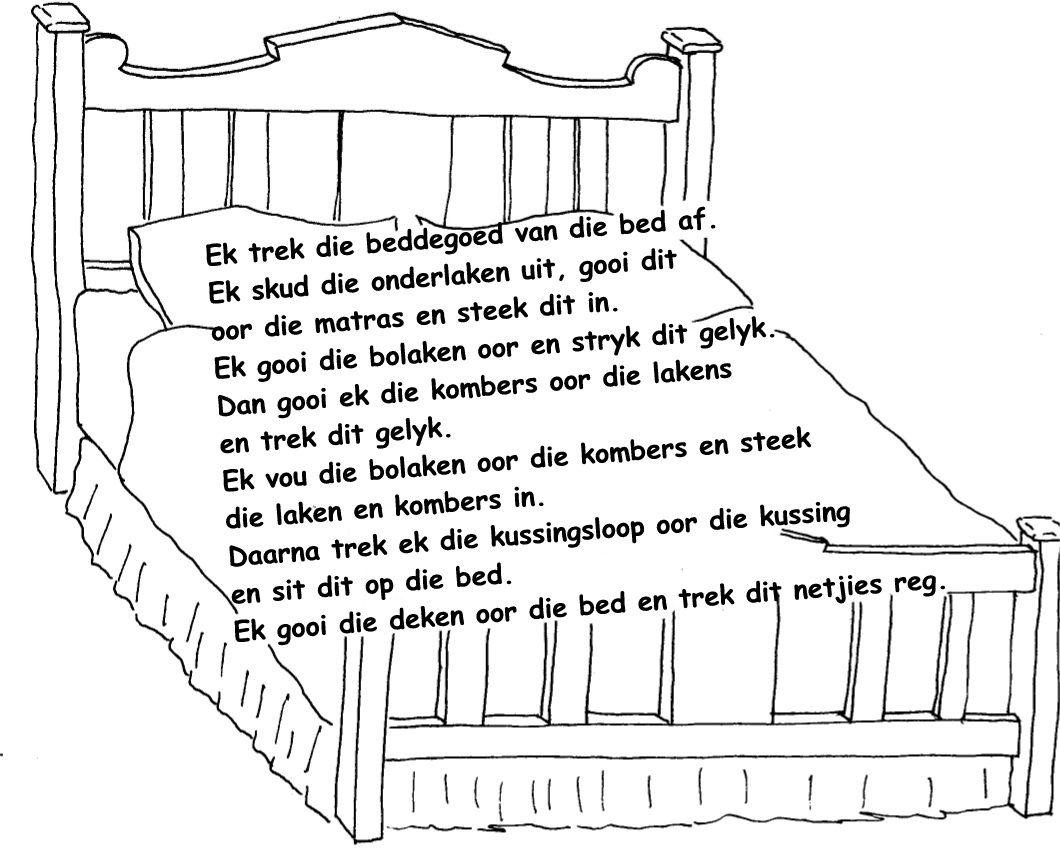 Ek trek die beddegoed van die bed af.
Ek skud die onderlaken uit, gooi dit
oor die matras en steek dit in.
Ek gooi die bolaken oor en stryk dit gelyk.
Dan gooi ek die kombers oor die lakens
en trek dit gelyk.
Ek vou die bolaken oor die kombers en steek
die laken en kombers in.
Daarna trek ek die kussingsloop oor die kussing
en sit dit op die bed.
Ek gooi die deken oor die bed en trek dit netjies reg.